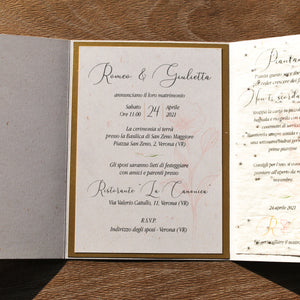 Romeo & Giulietta
annunciano il loro matrimonio
Sabato 24 Aprile
Ore 11.00 2021
La cerimonia si terrà
presso la Basilica di San Zeno Maggiore
Piazza San Zeno, 2, Verona (VR)
Gli sposi saranno lieti di festeggiare
con amici e parenti presso
Ristorante La Canonica
Via Valerio Catullo, 11, Verona (VR)
R.S.V.P.
Indirizzo degli sposi - Verona (VR)
Piantami
Pianta questo
24 aprile 2021
R